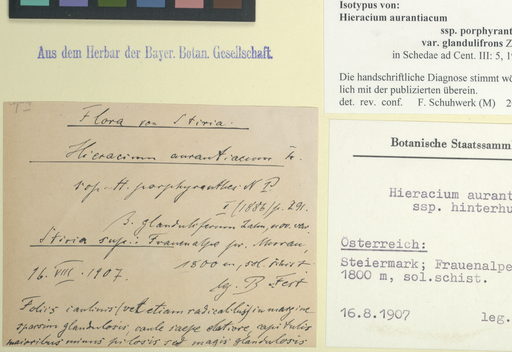 Aus dem Herbar der Bayer. Botan. Gesellschaft.
Isotypus von:
Hieracium aurantiacum
ssp. porphyrant
var. glandulifrons Z
in Schedae ad Cent. III: 5, 1
Die handschriftliche Diagnose stimmt wö
lich mit der publizierten überein.
det. rev. conf. F. Schuhwerk (M) 2
Flora von Stiria.
Hieracium aurantiacum L.
ssp. H. porphyranthes N P
(1886) p. 291.
β. glanduliferum Zahn, nov. var.
Stiria sup.: Frauenalpe pr. Murau
1800 m, sol. schist.
16. VIII. 1907. lg. B Fest
Foliis caulinis (vel etiam radicalibus) in margine
sparsim glandulosis, caule saepe elatiore, capitulis
maioribus minus pilosis sed magis glandulosis
Botanische Staatssamm
Hieracium aurant
ssp. hinterhu
Österreich:
Steiermark; Frauenalpe
1800 m, sol.schist.
16.8.1907 leg.